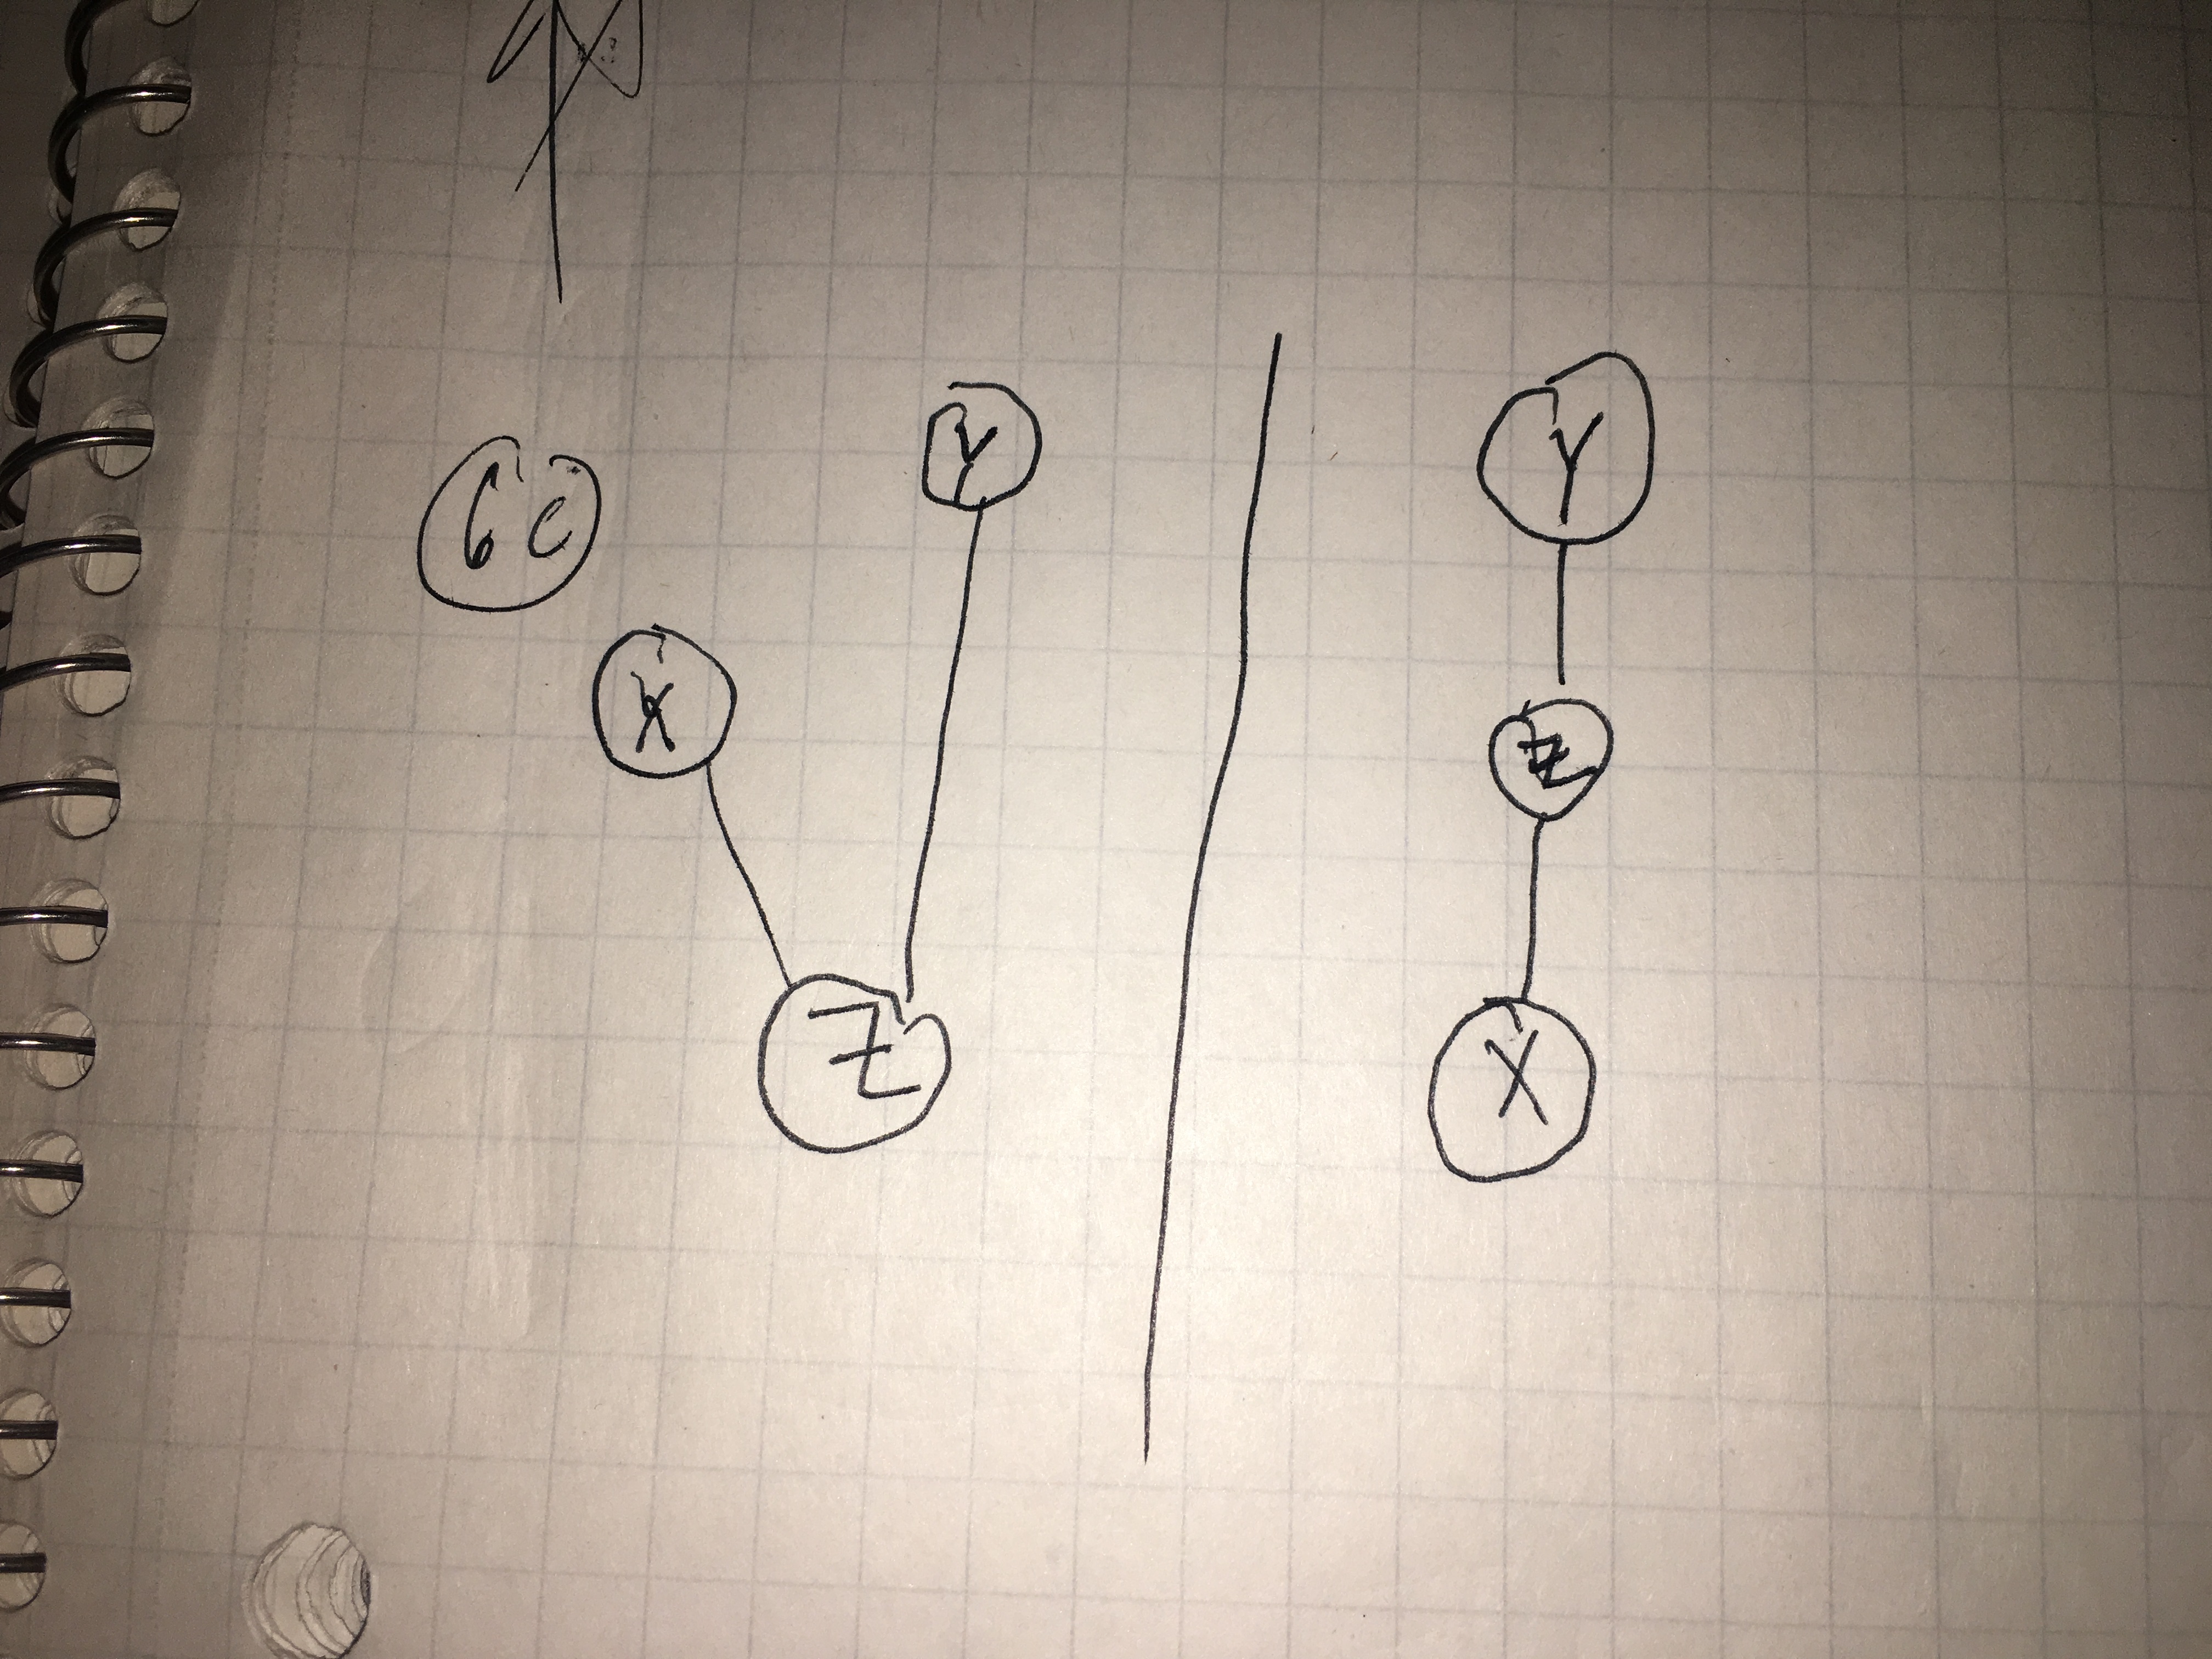 6c
Y
X
Z
Y
Z
X